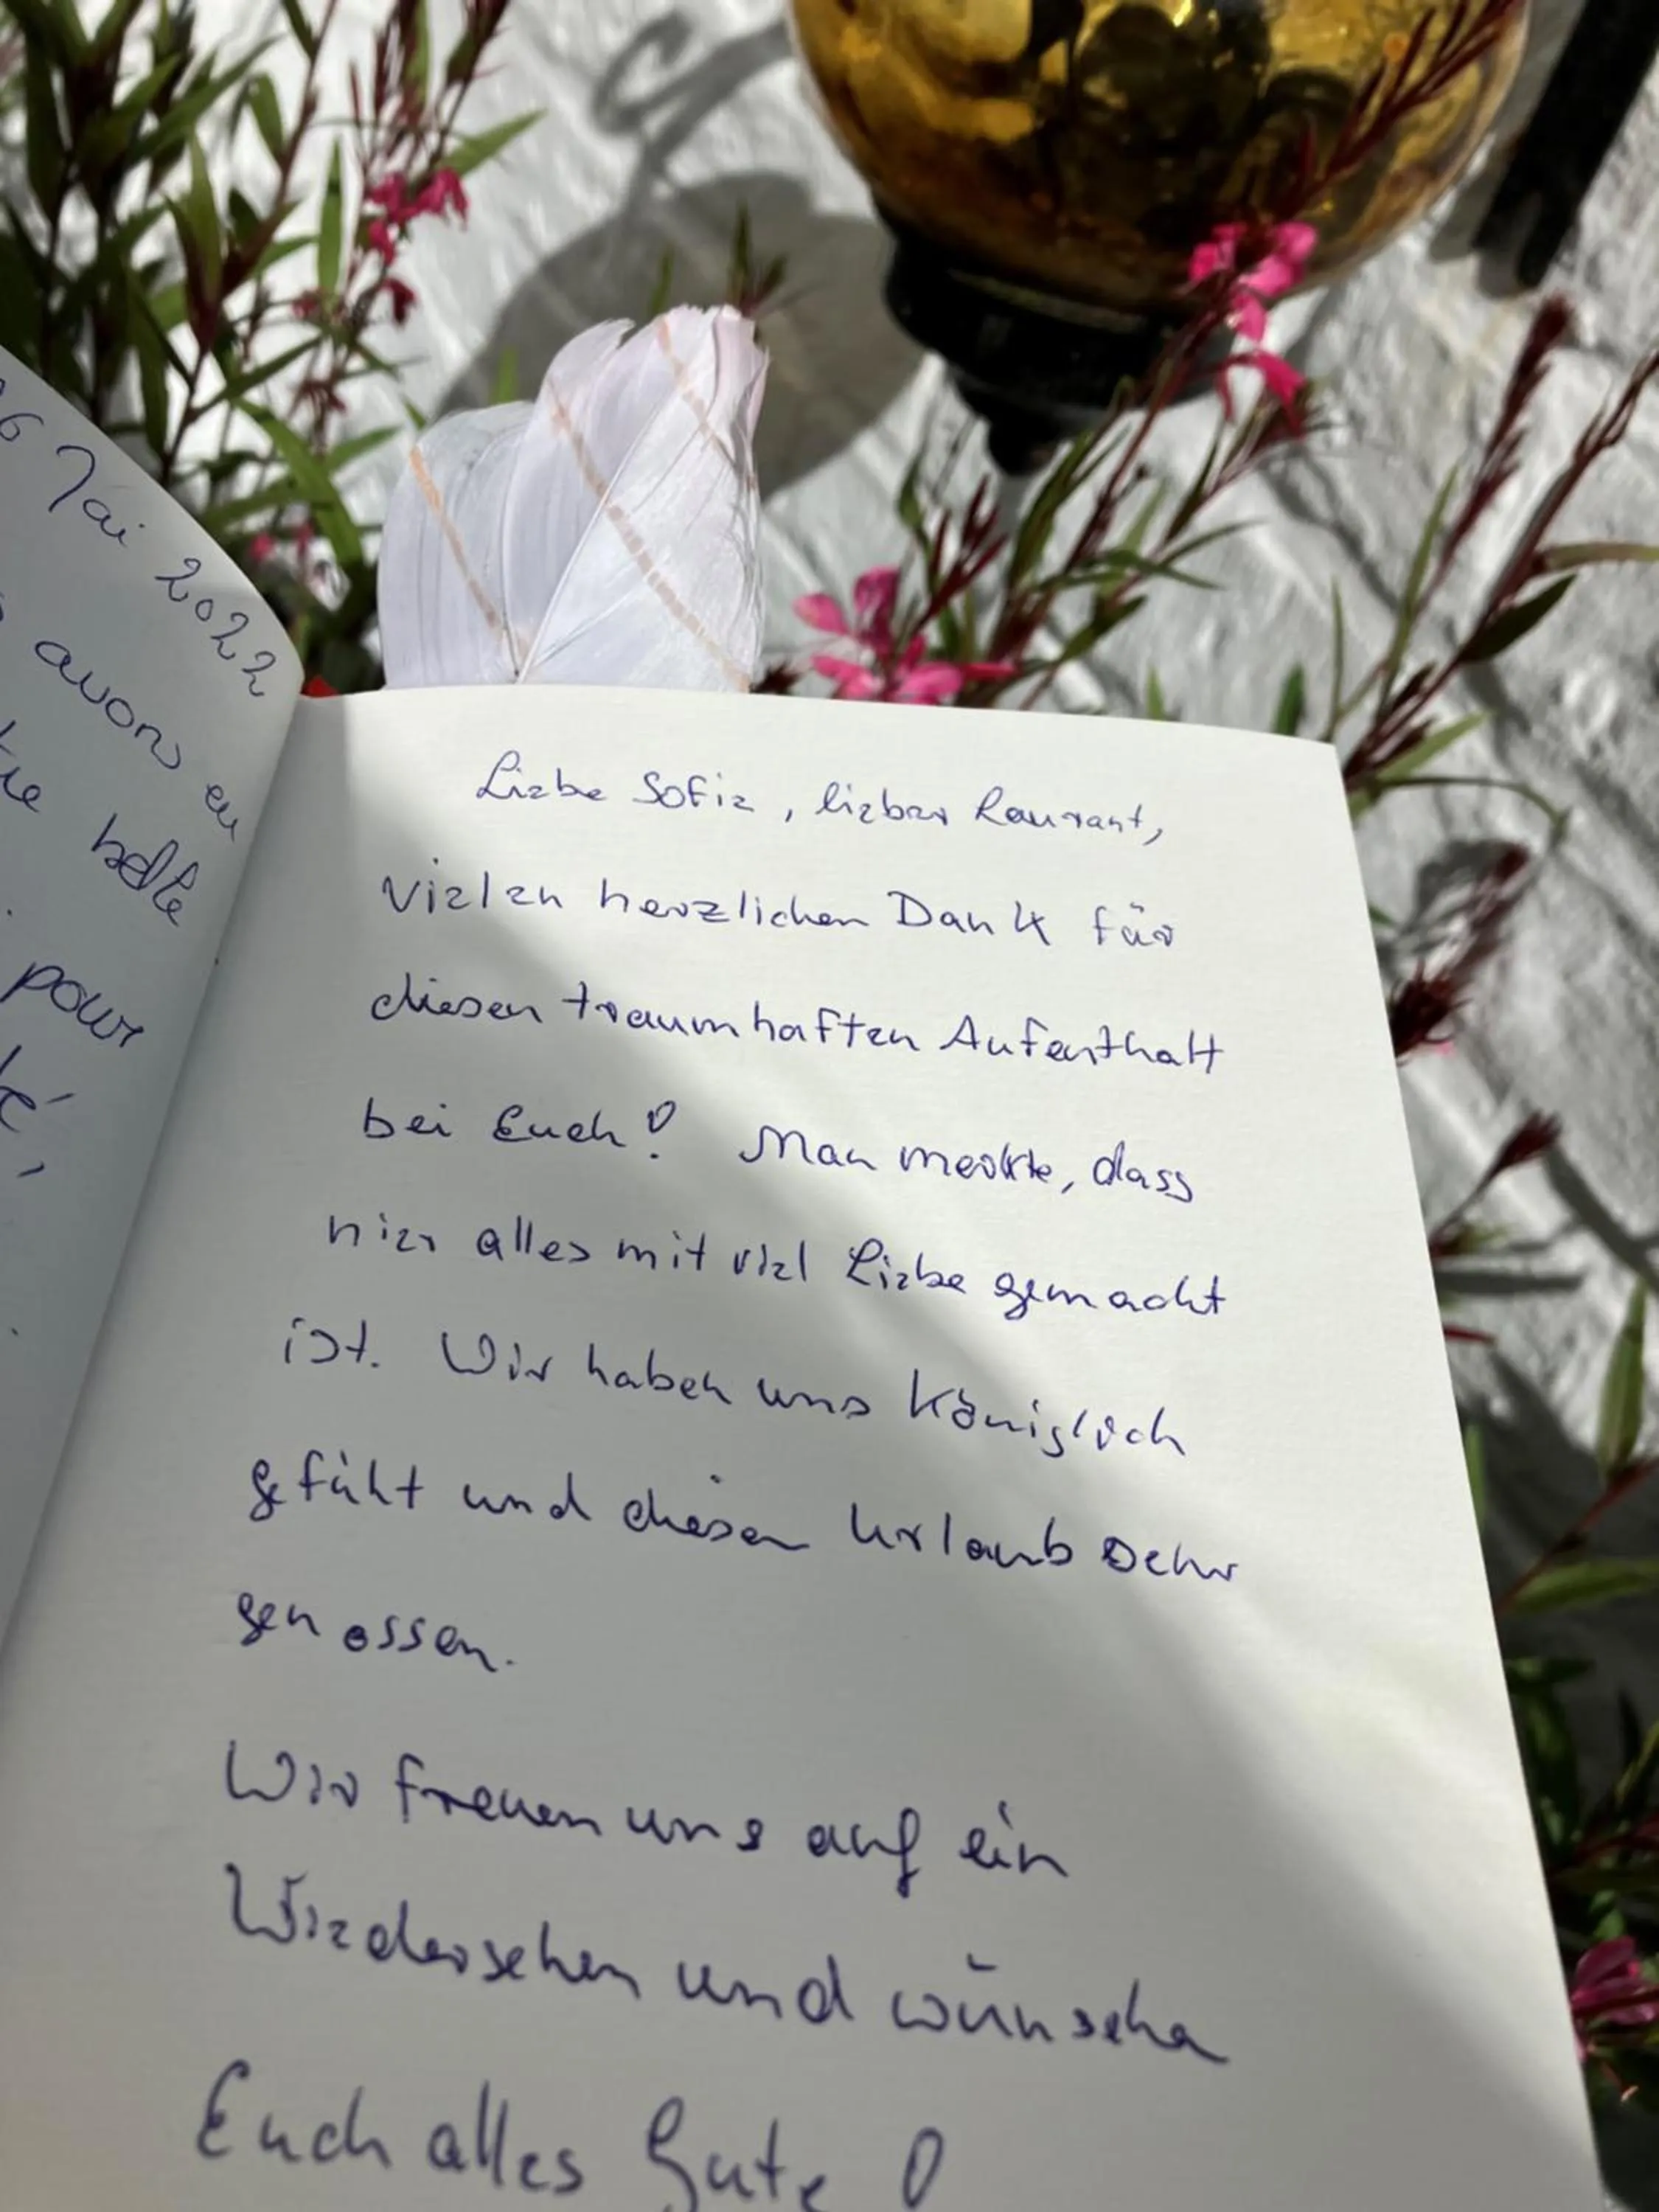 6 Mai 2022
avons eu
belle
pour
Liebe Sofie, lieber Laurent,
vielen herzlichen Dank für
diesen traumhaften Aufenthalt
bei Euch! Man merkte, dass
hier alles mit viel Liebe gemacht
ist. Wir haben uns königlich
gefühlt und diesen Urlaub sehr
genossen.
Wir freuen uns auf ein
Wiedersehen und wünschen
Euch alles Gute!